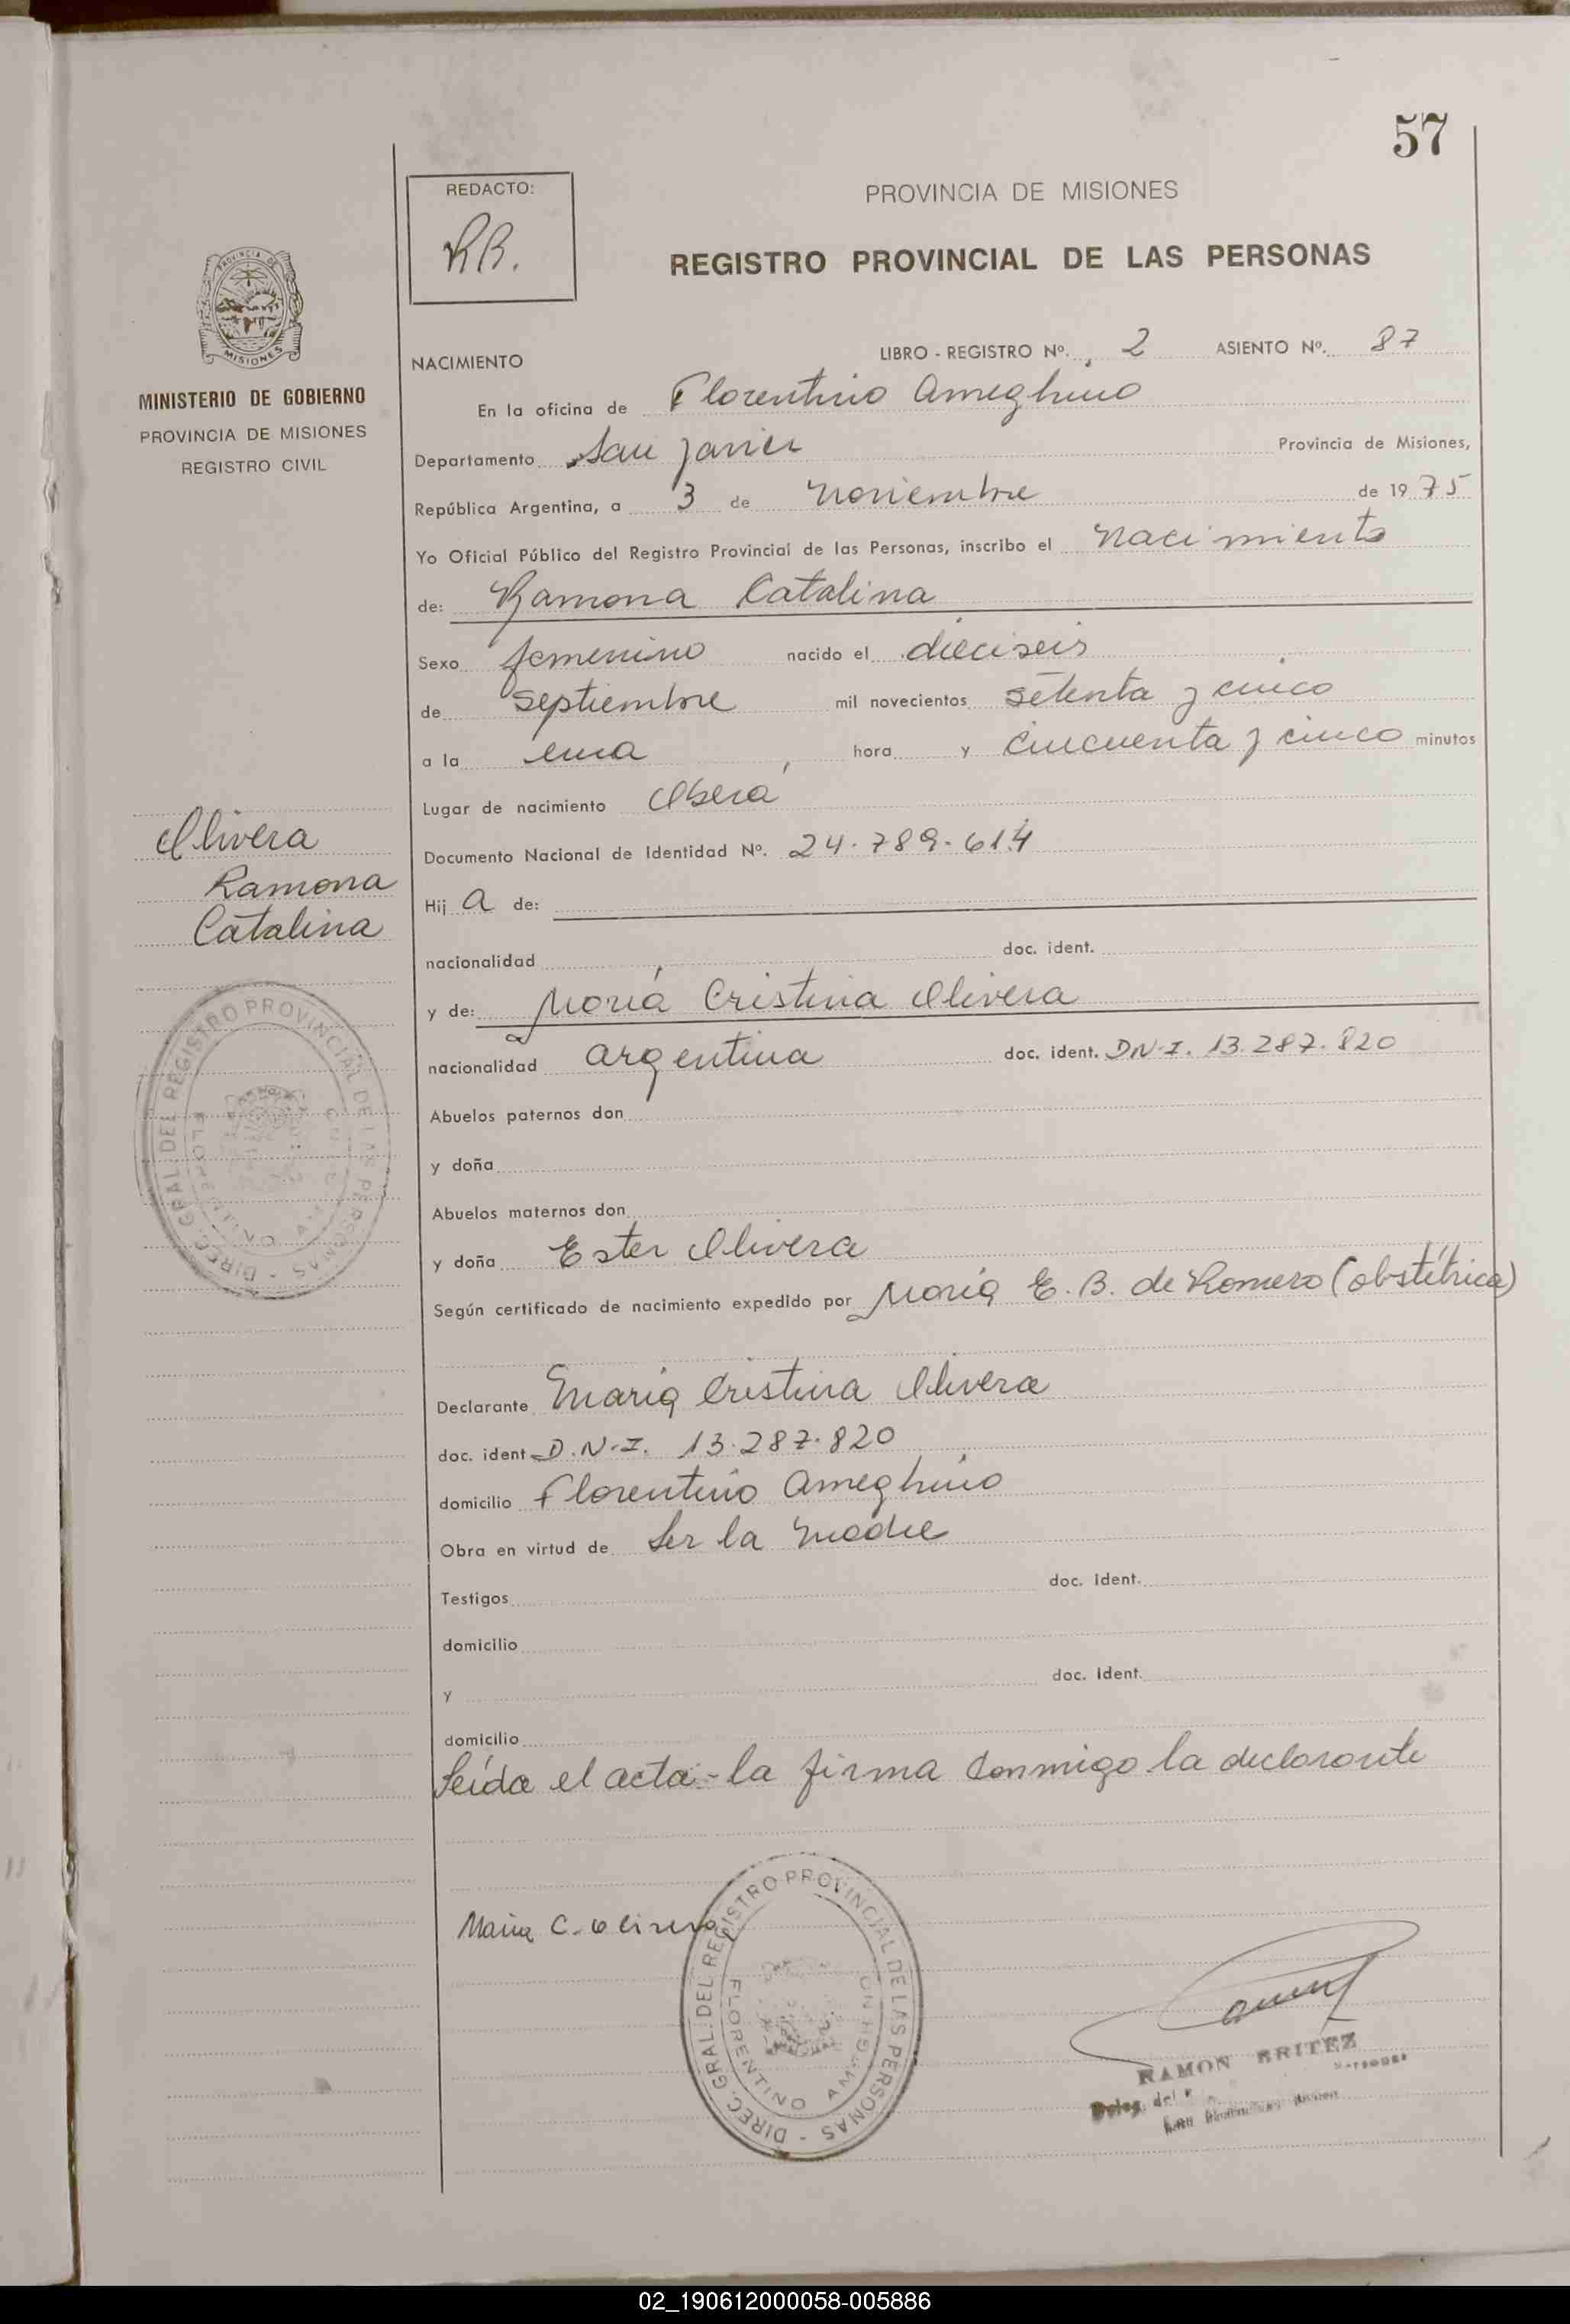 57
REDACTO:
RB.
PROVINCIA DE MISIONES
REGISTRO PROVINCIAL DE LAS PERSONAS
PROVINCIA DE
MISIONES
MINISTERIO DE GOBIERNO
PROVINCIA DE MISIONES
REGISTRO CIVIL
NACIMIENTO LIBRO - REGISTRO Nº. 2 ASIENTO Nº. 87
En la oficina de Florentino Ameghino
Departamento San Javier Provincia de Misiones,
República Argentina, a 3 de Noviembre de 1975
Yo Oficial Público del Registro Provincial de las Personas, inscribo el Nacimiento
de: Ramona Catalina
Sexo femenino nacido el dieciseis
de septiembre mil novecientos setenta y cinco
a la una hora y cincuenta y cinco minutos
Lugar de nacimiento Oberá
Olivera
Ramona
Catalina
Documento Nacional de Identidad Nº. 24.789.614
Hij a de:
nacionalidad doc. ident.
y de: María Cristina Olivera
nacionalidad argentina doc. ident. D.N.I. 13.287.820
Abuelos paternos don
y doña
Abuelos maternos don
y doña Ester Olivera
Según certificado de nacimiento expedido por María E. B. de Romero (obstétrica)
DIREC. GRAL. DEL REGISTRO PROVINCIAL DE LAS PERSONAS
Declarante María Cristina Olivera
doc. ident D.N.I. 13.287.820
domicilio Florentino Ameghino
Obra en virtud de Ser la madre
Testigos doc. ident.
domicilio
y doc. ident.
domicilio
Leída el acta - la firma conmigo la declarante
Maria C. Olivera
DIREC. GRAL. DEL REGISTRO PROVINCIAL DE LAS PERSONAS
FLORENTINO AMEGHINO
RAMON BRITEZ
Deleg. del
02_190612000058-005886